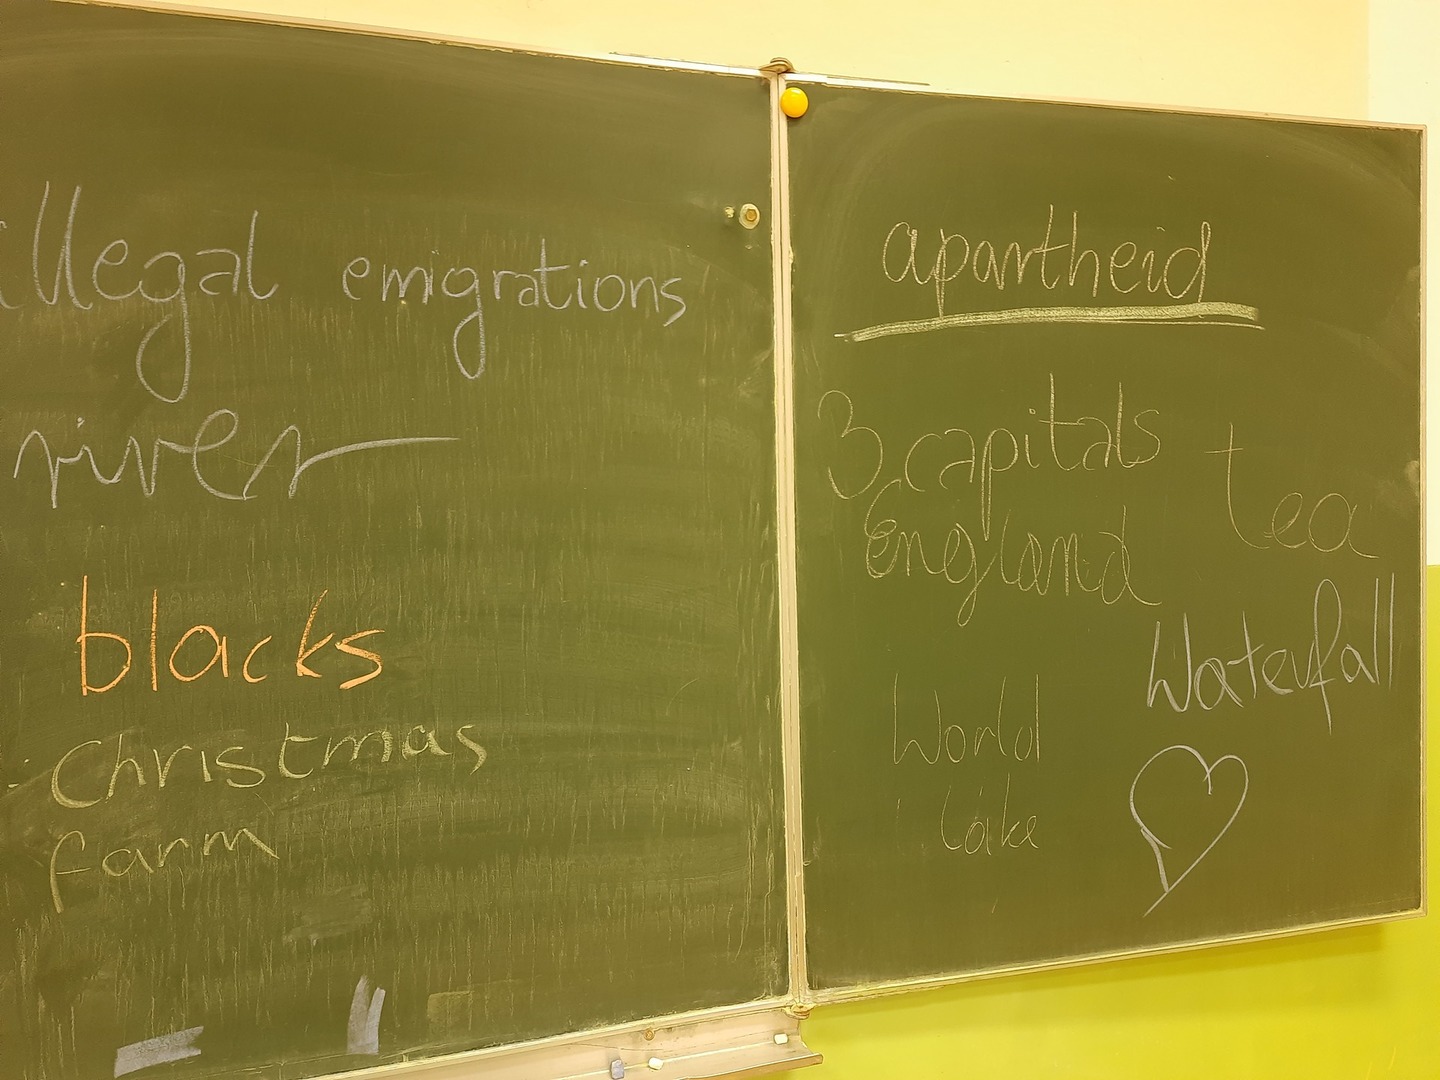 illegal emigrations
river
blacks
Christmas
farm
apartheid
3 capitals
tea
England
Waterfall
World
Lake